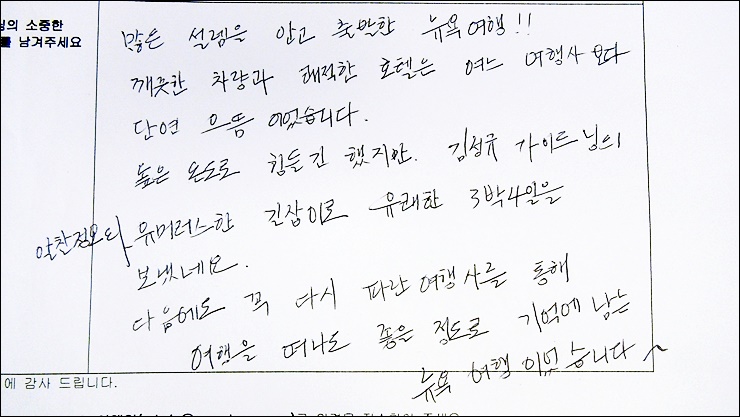 님의 소중한
를 남겨주세요
많은 설렘을 안고 출발한 뉴욕여행!!
깨끗한 차량과 쾌적한 호텔은 여느 여행사 보다
단연 으뜸 이었습니다.
높은 온도로 힘들긴 했지만. 김성규 가이드님의
알찬정보와
유머러스한 긴장이로 유쾌한 3박4일을
보냈네요.
다음에도 꼭 다시 파란여행사를 통해
여행을 떠나도 좋을 정도로 기억에 남는
뉴욕 여행 이었습니다~
에 감사 드립니다.